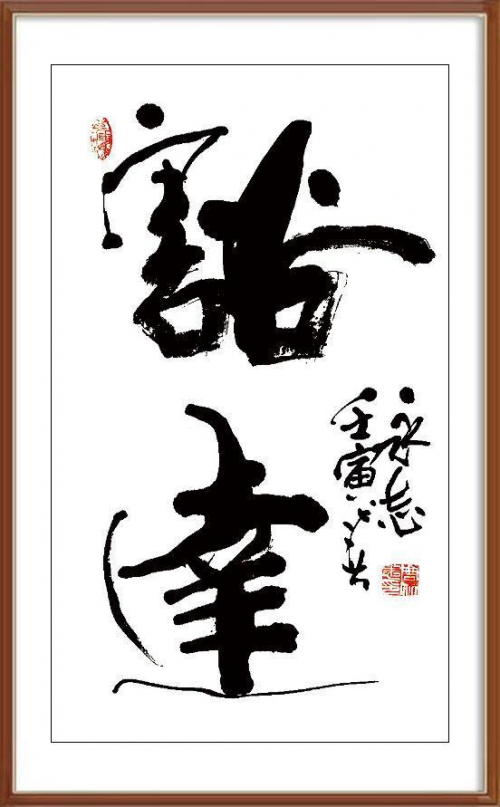 豁達
永志
壬寅